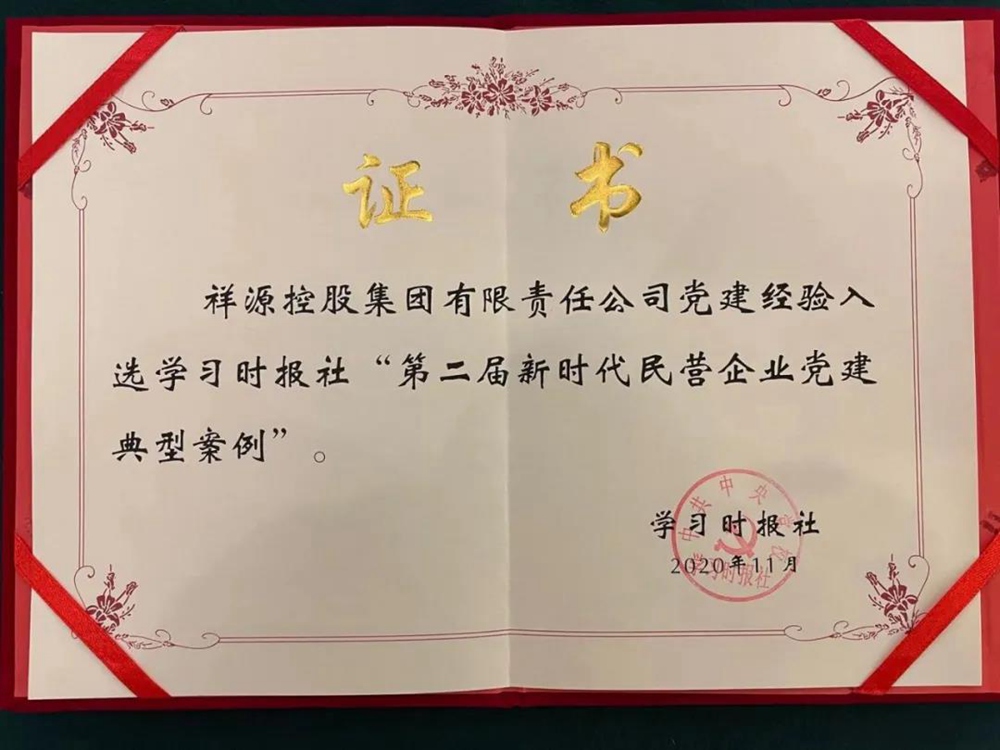 证 书
祥源控股集团有限责任公司党建经验入
选学习时报社“第二届新时代民营企业党建
典型案例”。
学习时报社
2020年11月
中共中央党校
学习时报社